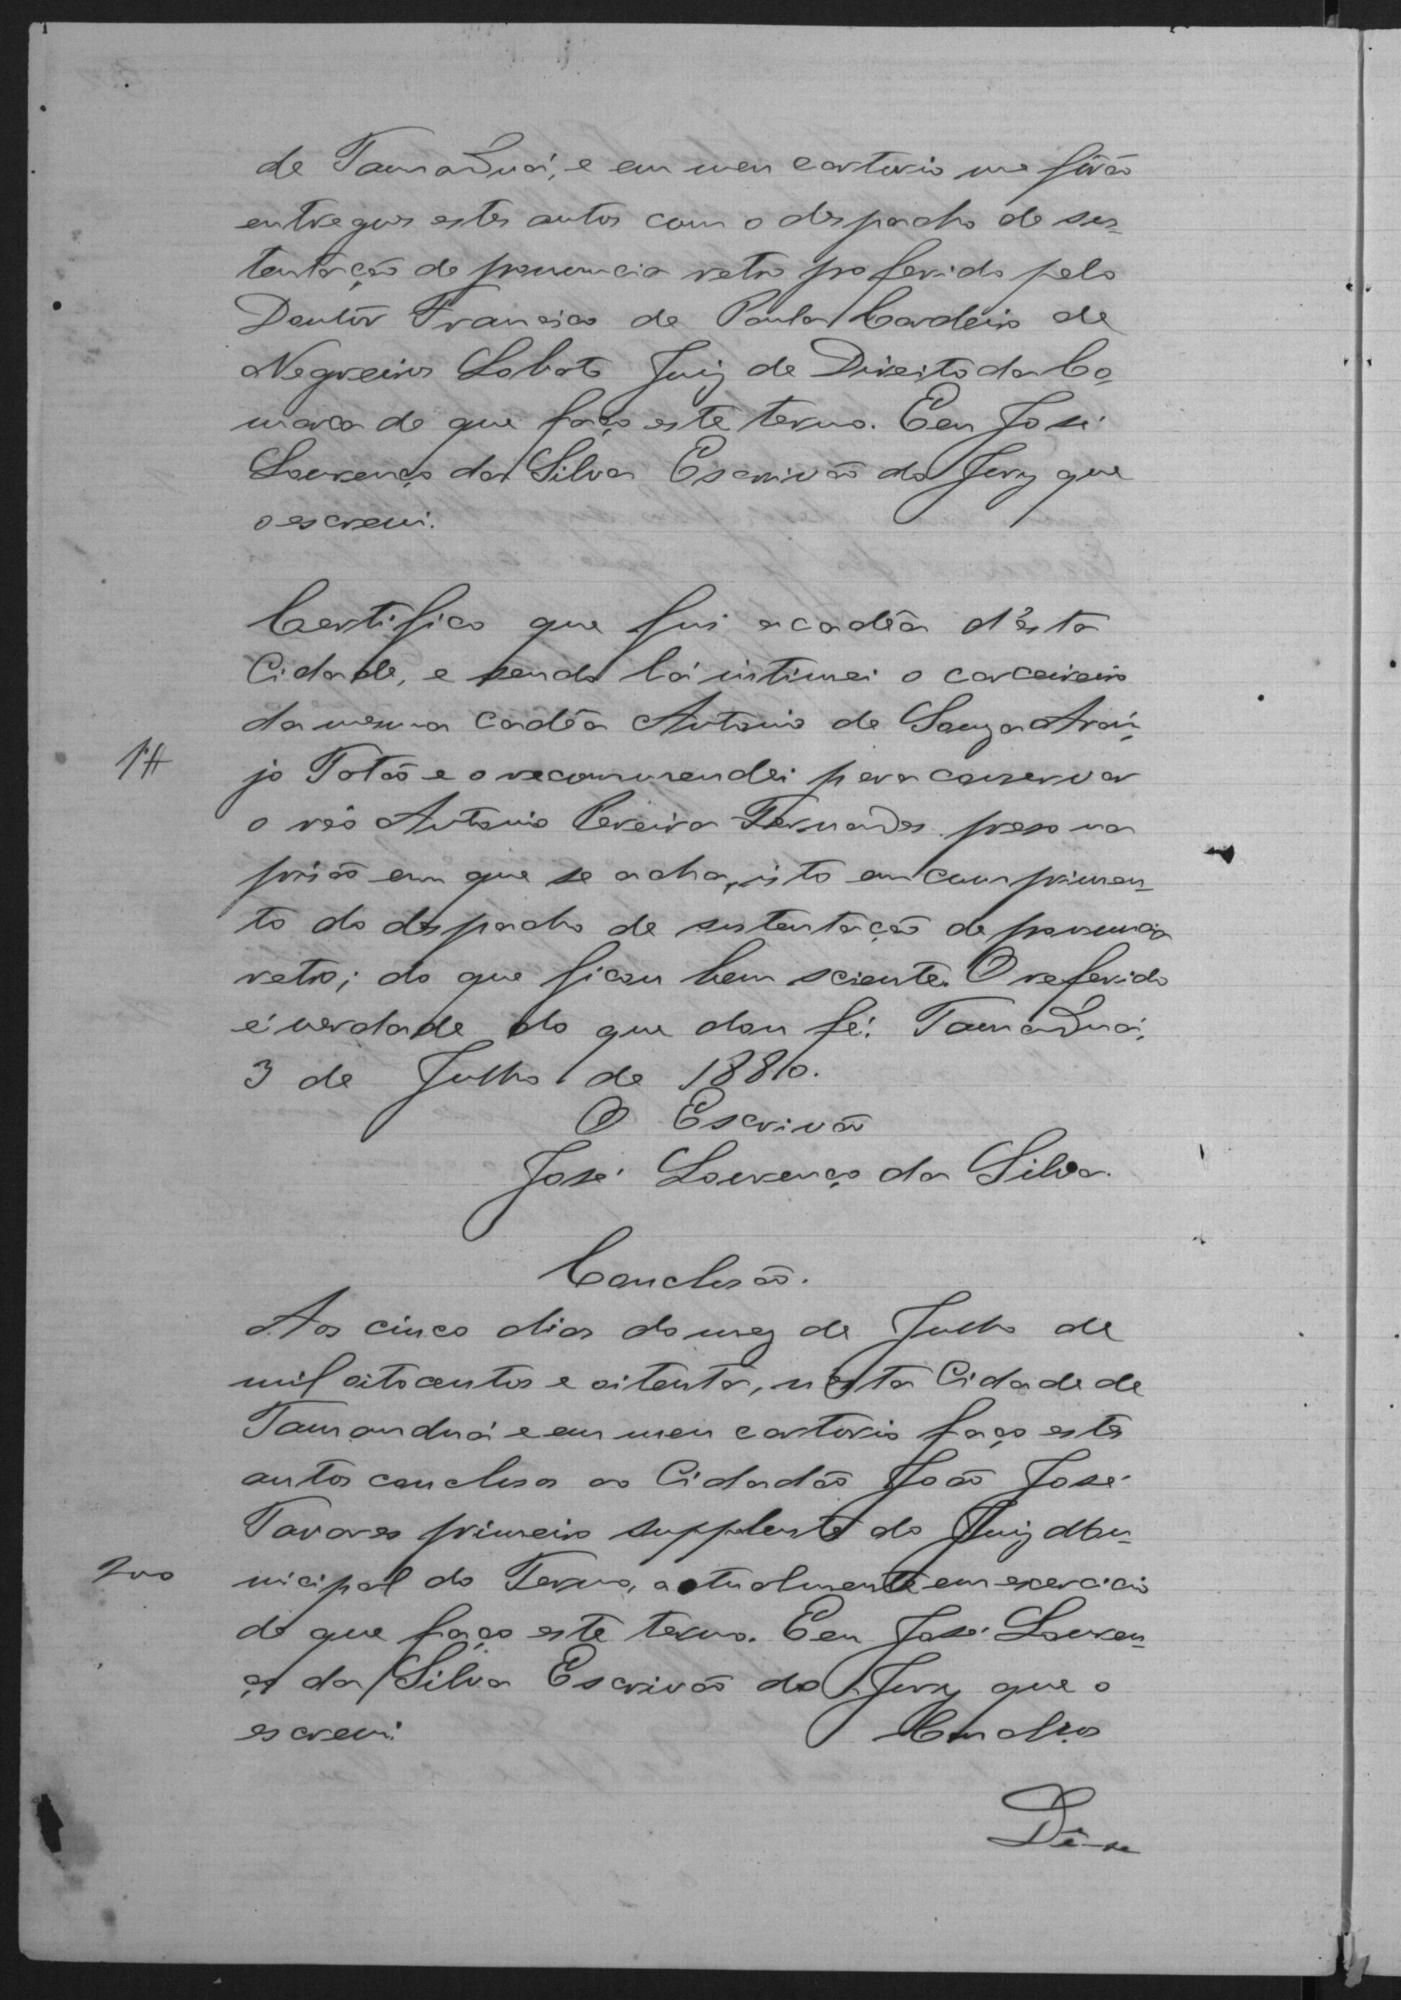 de Tamanduá, e em meu cartorio me fôrão
entregues estes autos com o despacho de sus-
tentação de pronuncia retro proferido pelo
Doutôr Francisco de Paula Cordeiro de
Negreiros Lobato Juiz de Direito da Co-
marca de que faço este termo. Eeu José
Lourenço da Silva Escrivão do Jury que
o escrevi.
Certifico que fui a cadêa d'ésta
Cidade, e sendo lá intimei o carcereiro
da mesma cadêa Antonio de Souza Araú-
jo Totão e o recommendei para conservar
o réo Antonio Pereira Fernandes preso na
prisão em que se acha, isto em cumprimen-
to do despacho de sustentação de pronuncia
retro; do que ficou bem sciente. O referido
é verdade do que dou fé. Tamanduá,
3 de Julho de 1880.
O Escrivão
José Lourenço da Silva.
Conclusão.
Aos cinco dias do mez de Julho de
mil oitocentos e oitenta, n'esta Cidade de
Tamanduá e em meu cartorio faço estes
autos conclusos ao Cidadão João José
Tavares primeiro supplente do Juiz Mu-
nicipal do Termo, actualmente em exercicio
do que faço este termo. Eeu José Louren-
ço da Silva Escrivão do Jury que o
escrevi.
Conclusos
Dê-se